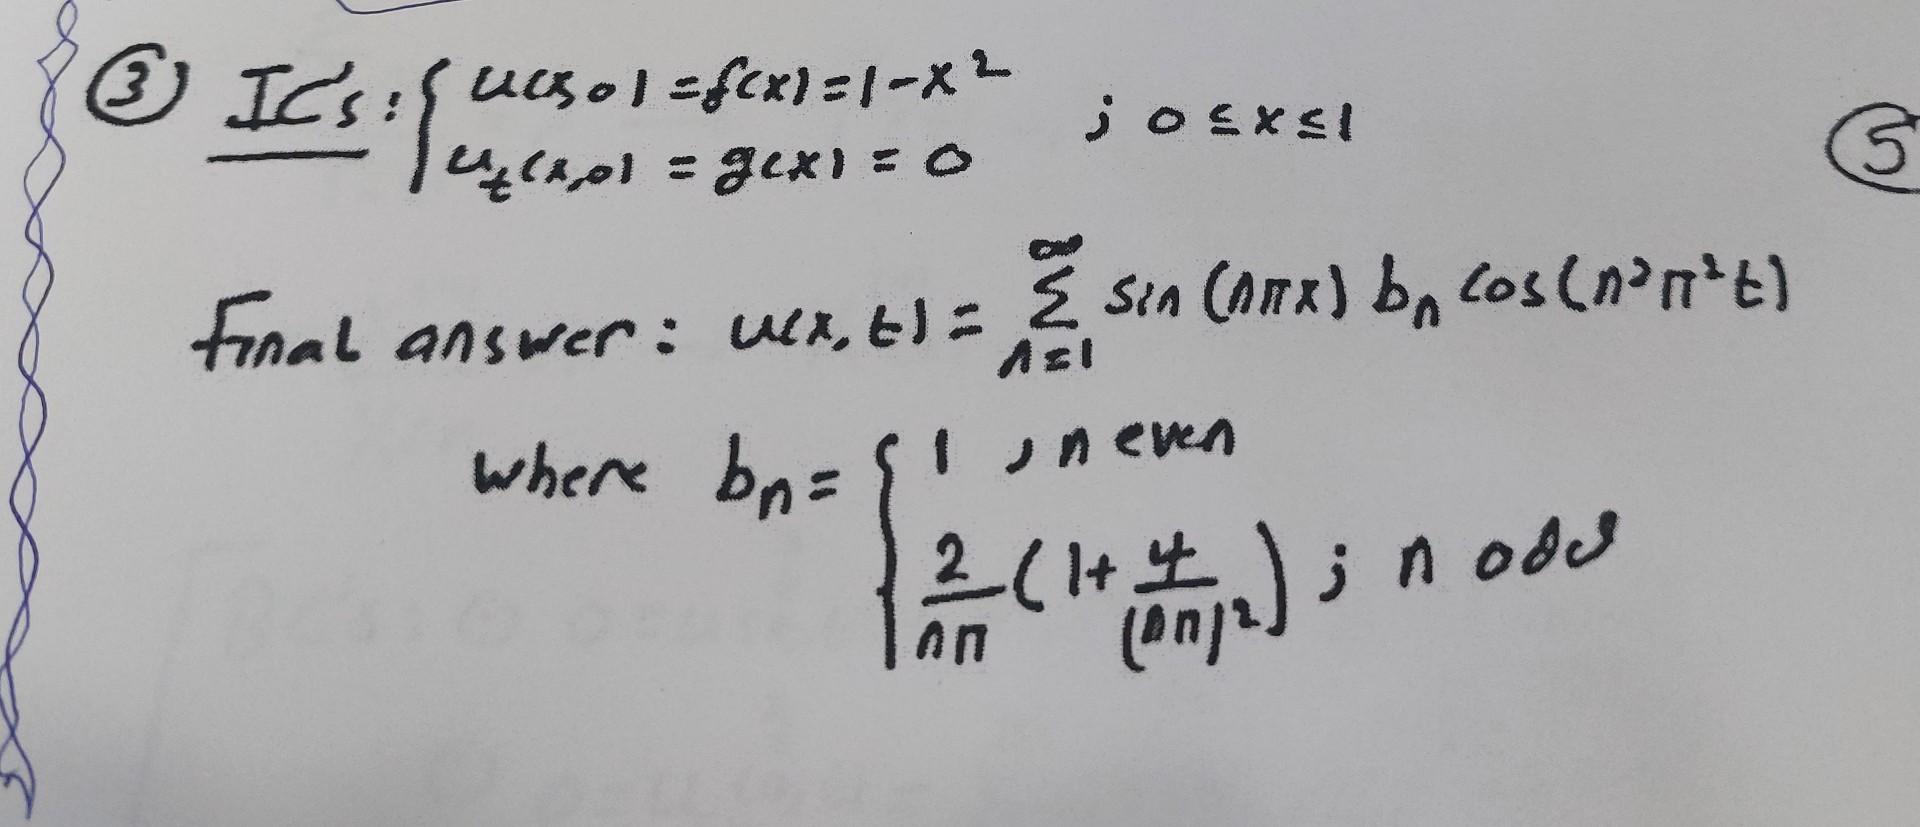 ③ IC's: { u(x,0) = f(x) = 1 - x²
u_t(x,0) = g(x) = 0 ; 0 ≤ x ≤ 1
⑤
Final answer: u(x,t) = ∑_{n=1}^{∞} sin(nπx) b_n cos(n²π²t)
where b_n = { 1 , n even
2/(nπ) (1 + 4/(nπ)²) ; n odd